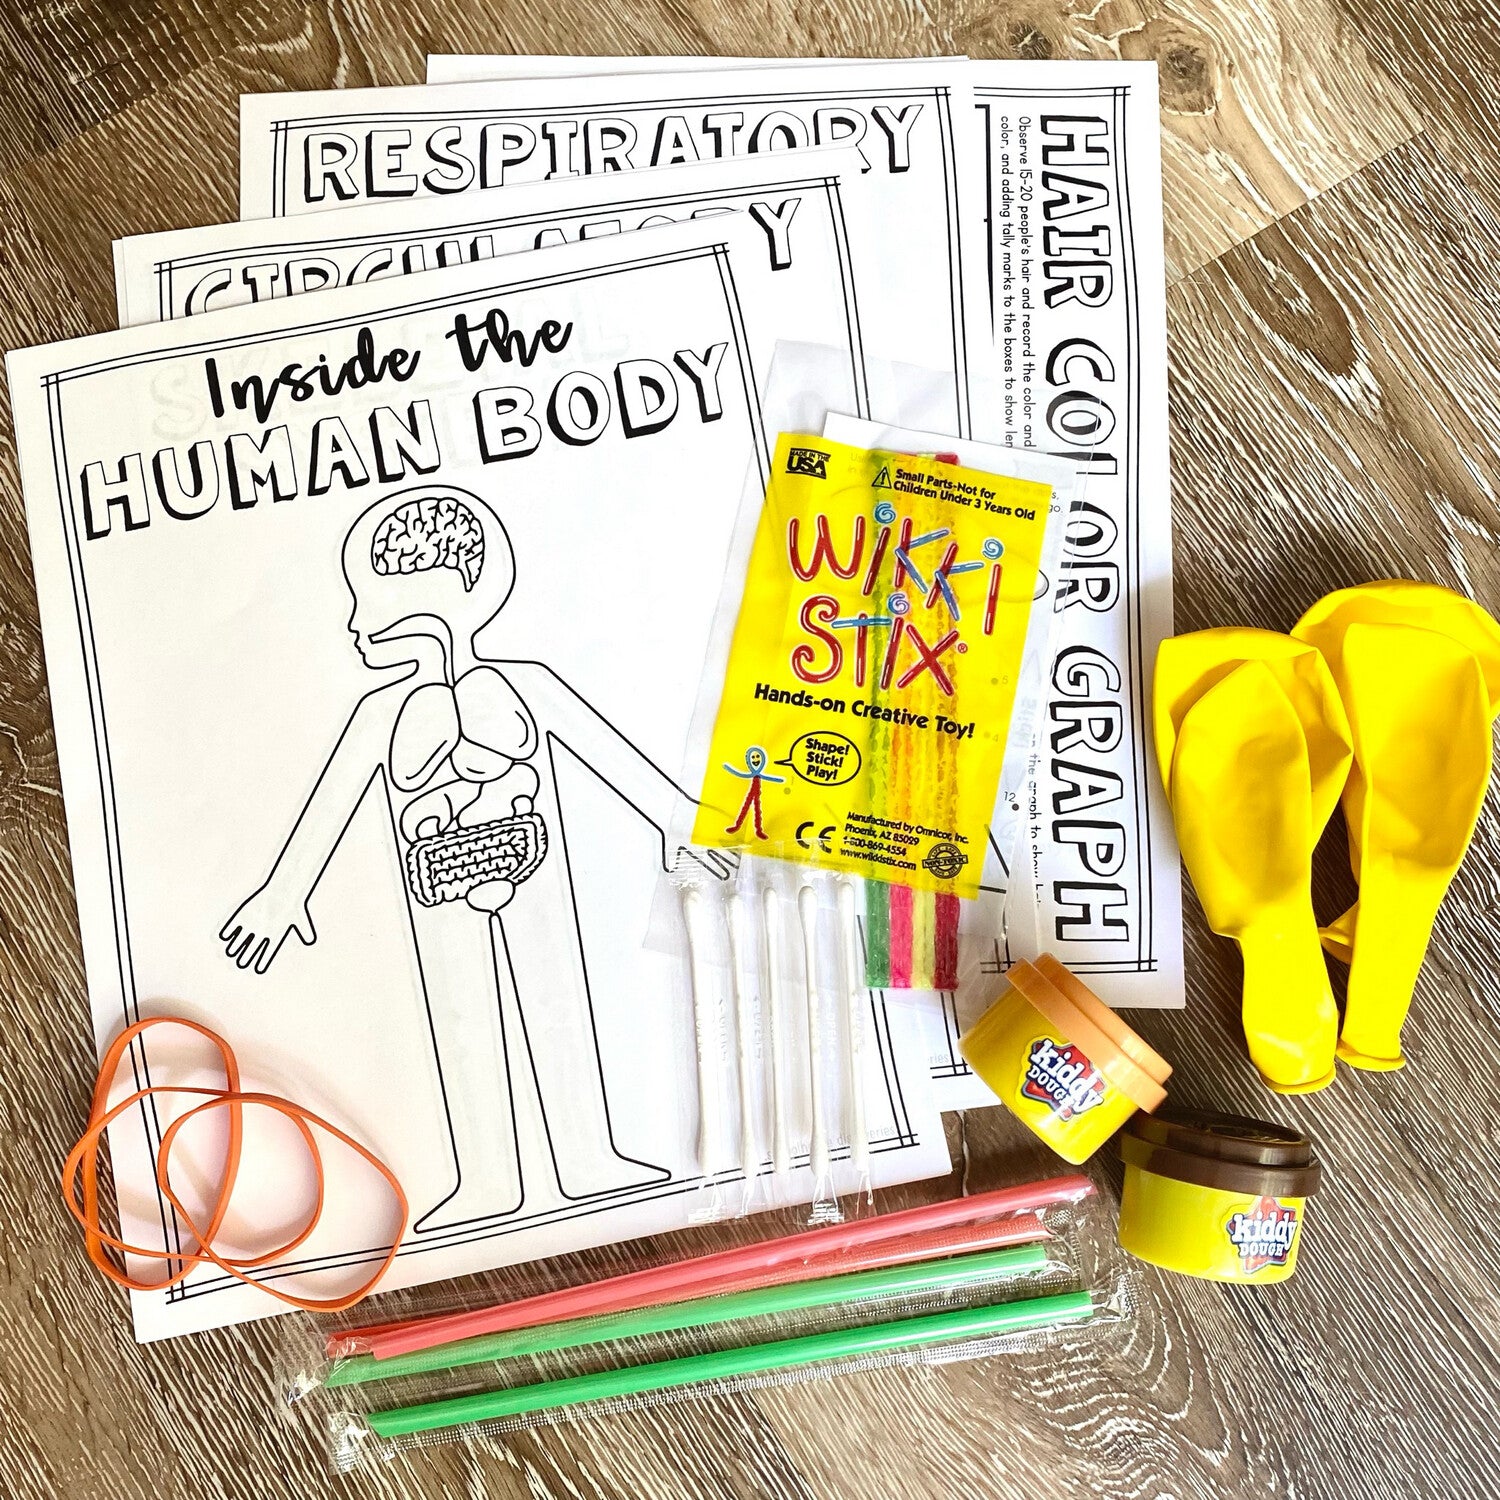 RESPIRATORY
CIRCULATORY
Inside the
HUMAN BODY
HAIR COLOR GRAPH
Observe 15-20 people's hair and record the color and
color, and adding tally marks to the boxes to show len
on the graph to show
12
5
4
MADE IN THE
USA
Small Parts-Not for
Children Under 3 Years Old
Wikki
Stix®
Hands-on Creative Toy!
Shape!
Stick!
Play!
CE
Manufactured by Omnicor, Inc.
Phoenix, AZ 85029
1-800-869-4554
www.wikkistix.com
NON-TOXIC
Kiddy
DOUGH
Kiddy
DOUGH